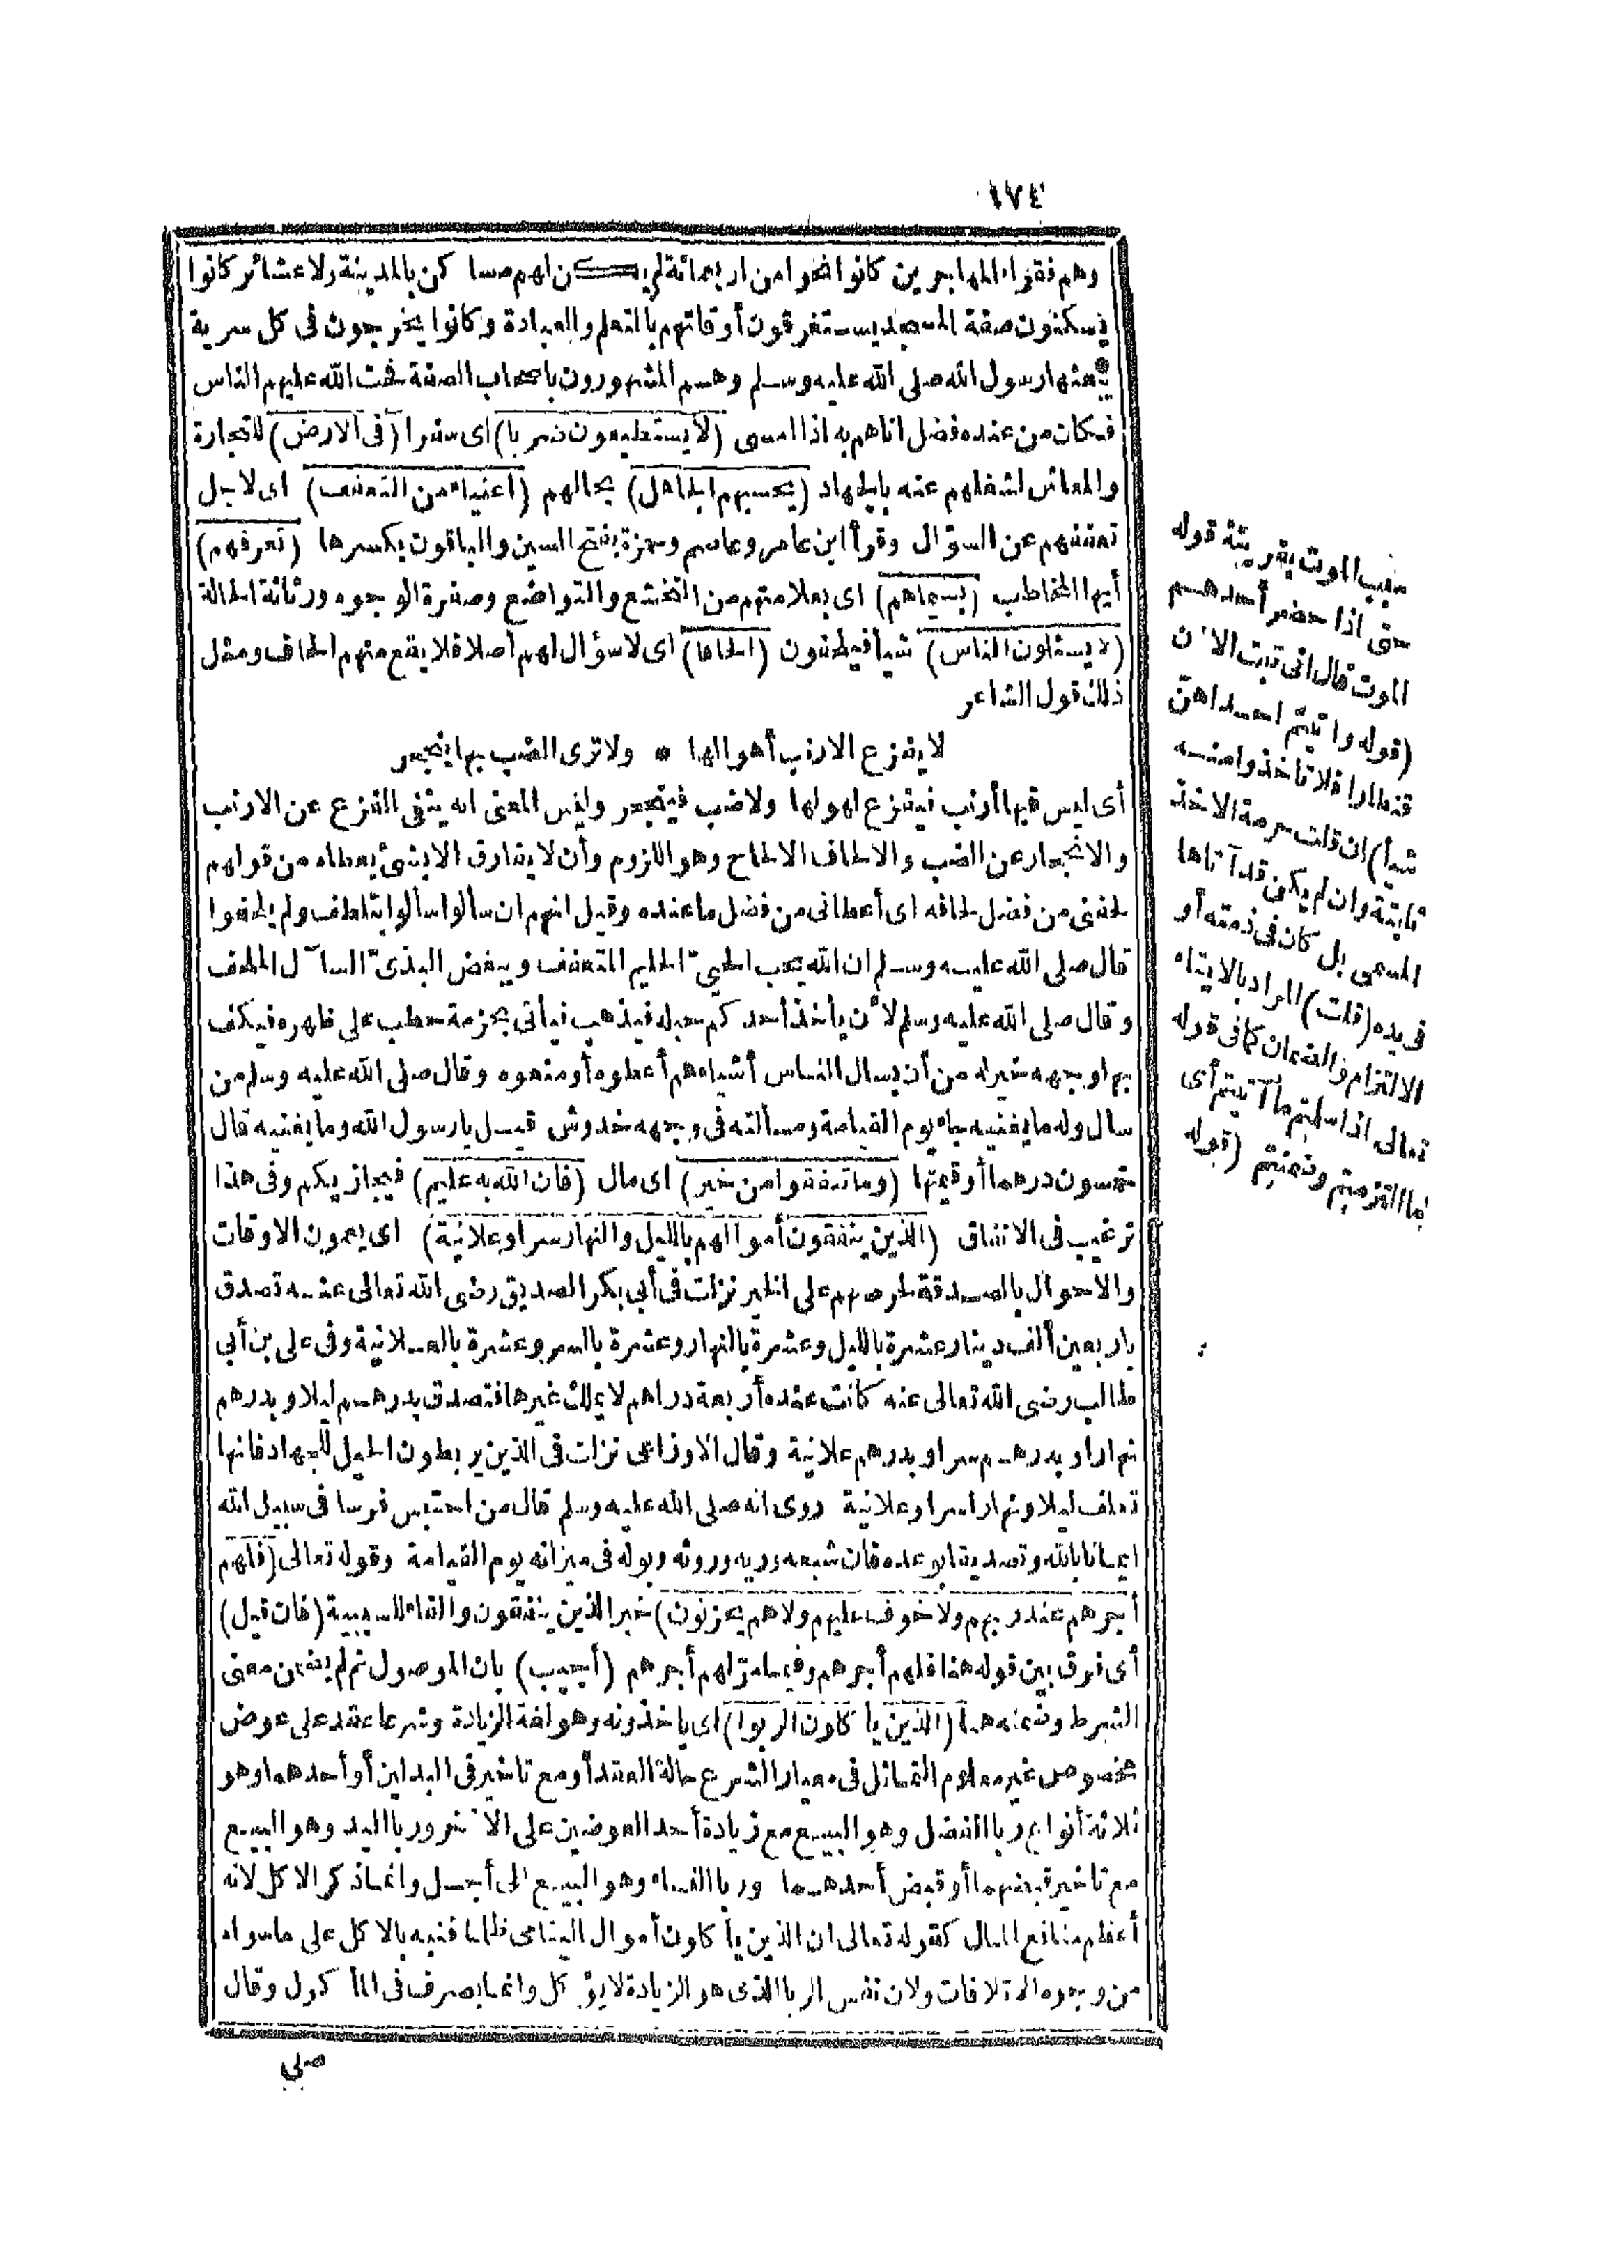 ١٧٤
وهم فقراء المهاجرين كانوا نحوا من اربعمائة لم يكن لهم مسا كن بالمدينة ولا عشائر كانوا
يسكنون صفة المسجد يستغرقون أوقاتهم بالتعلم والعبادة وكانوا يخرجون فى كل سرية
يبعثها رسول الله صلى الله عليه وسلم وهم المشهورون باصحاب الصفة فحث الله عليهم الناس
فكان من عنده فضل اتاهم به اذا امسى (لا يستطيعون ضربا) اى سفرا (فى الارض) للتجارة
والمعاش لشغلهم عنه بالجهاد (يحسبهم الجاهل) بحالهم (اغنياء من التعفف) اى لاجل
تعففهم عن السؤال وقرأ ابن عامر وعاصم وحمزة بفتح السين والباقون بكسرها (تعرفهم)
أيها المخاطب (بسيماهم) اى بعلامتهم من التخشع والتواضع وصفرة الوجوه ورثاثة الحالة
(لا يسئلون الناس) شيأ فيلحفون (الحافا) اى لا سؤال لهم أصلا فلا يقع منهم الحاف ومثل
ذلك قول الشاعر
لا يفزع الارنب أهوالها * ولا ترى الضب بها ينجحر
أى ليس فيها أرنب فيفزع لهولها ولا ضب فينجحر وليس المعنى انه ينفى الفزع عن الارنب
والانجحار عن الضب والالحاف الالحاح وهو اللزوم وأن لا يفارق الا بشئ يعطاه من قولهم
لحفنى من فضل لحافه اى أعطانى من فضل ما عنده وقيل انهم ان سألوا سألوا بتلطف ولم يلحفوا
قال صلى الله عليه وسلم ان الله يحب الحيىّ الحليم المتعفف ويبغض البذىّ السآل الملحف
وقال صلى الله عليه وسلم لأن يأخذ أحدكم حبله فيذهب فيأتى بحزمة حطب على ظهره فيكف
بها وجهه خير له من أن يسأل الناس أشياءهم أعطوه أو منعوه وقال صلى الله عليه وسلم من
سأل وله ما يغنيه جاء يوم القيامة ومسألته فى وجهه خدوش قيل يارسول الله وما يغنيه قال
خمسون درهما أو قيمتها (وما تنفقوا من خير) اى مال (فان الله به عليم) فيجازيكم وفى هذا
ترغيب فى الانفاق (الذين ينفقون أموالهم بالليل والنهار سرا وعلانية) اى يعمون الاوقات
والاحوال بالصدقة لحرصهم على الخير نزلت فى أبى بكر الصديق رضى الله تعالى عنه تصدق
باربعين ألف دينار عشرة بالليل وعشرة بالنهار وعشرة بالسر وعشرة بالعلانية وفى على بن أبى
طالب رضى الله تعالى عنه كانت عنده أربعة دراهم لا يملك غيرها فتصدق بدرهم ليلا وبدرهم
نهارا وبدرهم سرا وبدرهم علانية وقال الاوزاعى نزلت فى الذين يربطون الخيل للجهاد فانها
تعلف ليلا ونهارا سرا وعلانية روى انه صلى الله عليه وسلم قال من احتبس فرسا فى سبيل الله
ايمانا بالله وتصديقا بوعده فان شبعه وريه وروثه وبوله فى ميزانه يوم القيامة وقوله تعالى (فلهم
أجرهم عند ربهم ولا خوف عليهم ولا هم يحزنون) خبر الذين ينفقون والفاء للسببية (فان قيل)
أى فرق بين قوله هنا فلهم أجرهم وفيما مرّ لهم أجرهم (أجيب) بان الموصول ثم لم يضمن معنى
الشرط وضمنه هنا (الذين يا كلون الربوا) اى ياخذونه وهو لغة الزيادة وشرعا عقد على عوض
مخصوص غير معلوم التماثل فى معيار الشرع حالة العقد أو مع تاخير فى البدلين أو أحدهما وهو
ثلاثة أنواع ربا الفضل وهو البيع مع زيادة أحد العوضين على الآخر وربا اليد وهو البيع
مع تاخير قبضهما أو قبض أحدهما وربا النساء وهو البيع الى أجل وانما ذكر الاكل لانه
أعظم منافع المال كقوله تعالى ان الذين يأكلون أموال اليتامى ظلما فنبه بالاكل على ما سواه
من وجوه الاتلافات ولان نفس الربا الذى هو الزيادة لا يؤكل وانما يصرف فى المأكول وقال
صلى
سبب الموت بقرينة قوله
حتى اذا حضر أحدهم
الموت قال انى تبت الآن
(قوله وآتيتم احداهنّ
قنطارا فلا تاخذوا منه
شيأ) ان قلت حرمة الاخذ
ثابتة وان لم يكن قد آتاها
المسمى بل كان فى ذمته أو
فى يده (قلت) المراد بالايتاء
الالتزام والضمان كما فى قوله
تعالى اذا سلمتم ما آتيتم أى
ما التزمتم وضمنتم (قوله